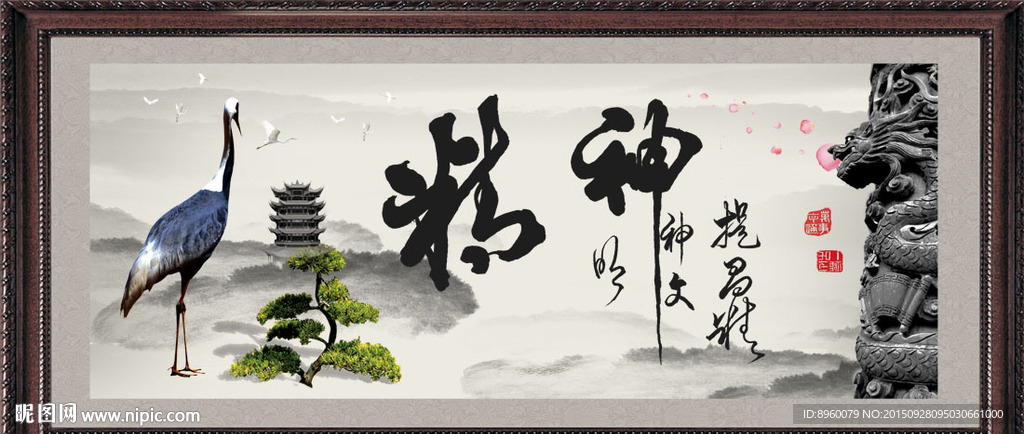 精神
提昌精
神文
明
昵图网 www.nipic.com
ID:8960079 NO:20150928095030661000